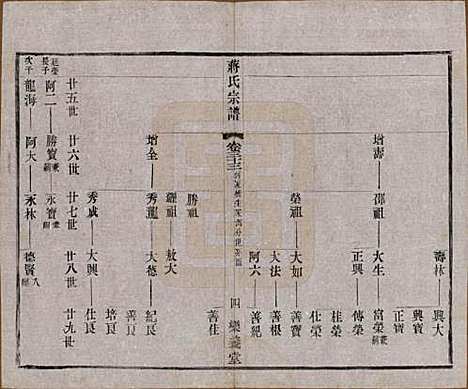 壽林
興大
興寶
正寶
增壽
邵祖
大生
富榮
正興
傳榮
桂榮
仕榮
榮祖
大如
善寶
大法
善根
阿六
善紀
蔣氏宗譜
四
樂義堂
勝祖
善佳
經祖
敖大
增全
秀龍
大德
紀良
培良
善良
秀成
大興
仕良
廿五世
廿六世
廿七世
廿八世
廿九世
長子
阿二
勝寶
永寶
次子
龍海
阿大
永林
德賢